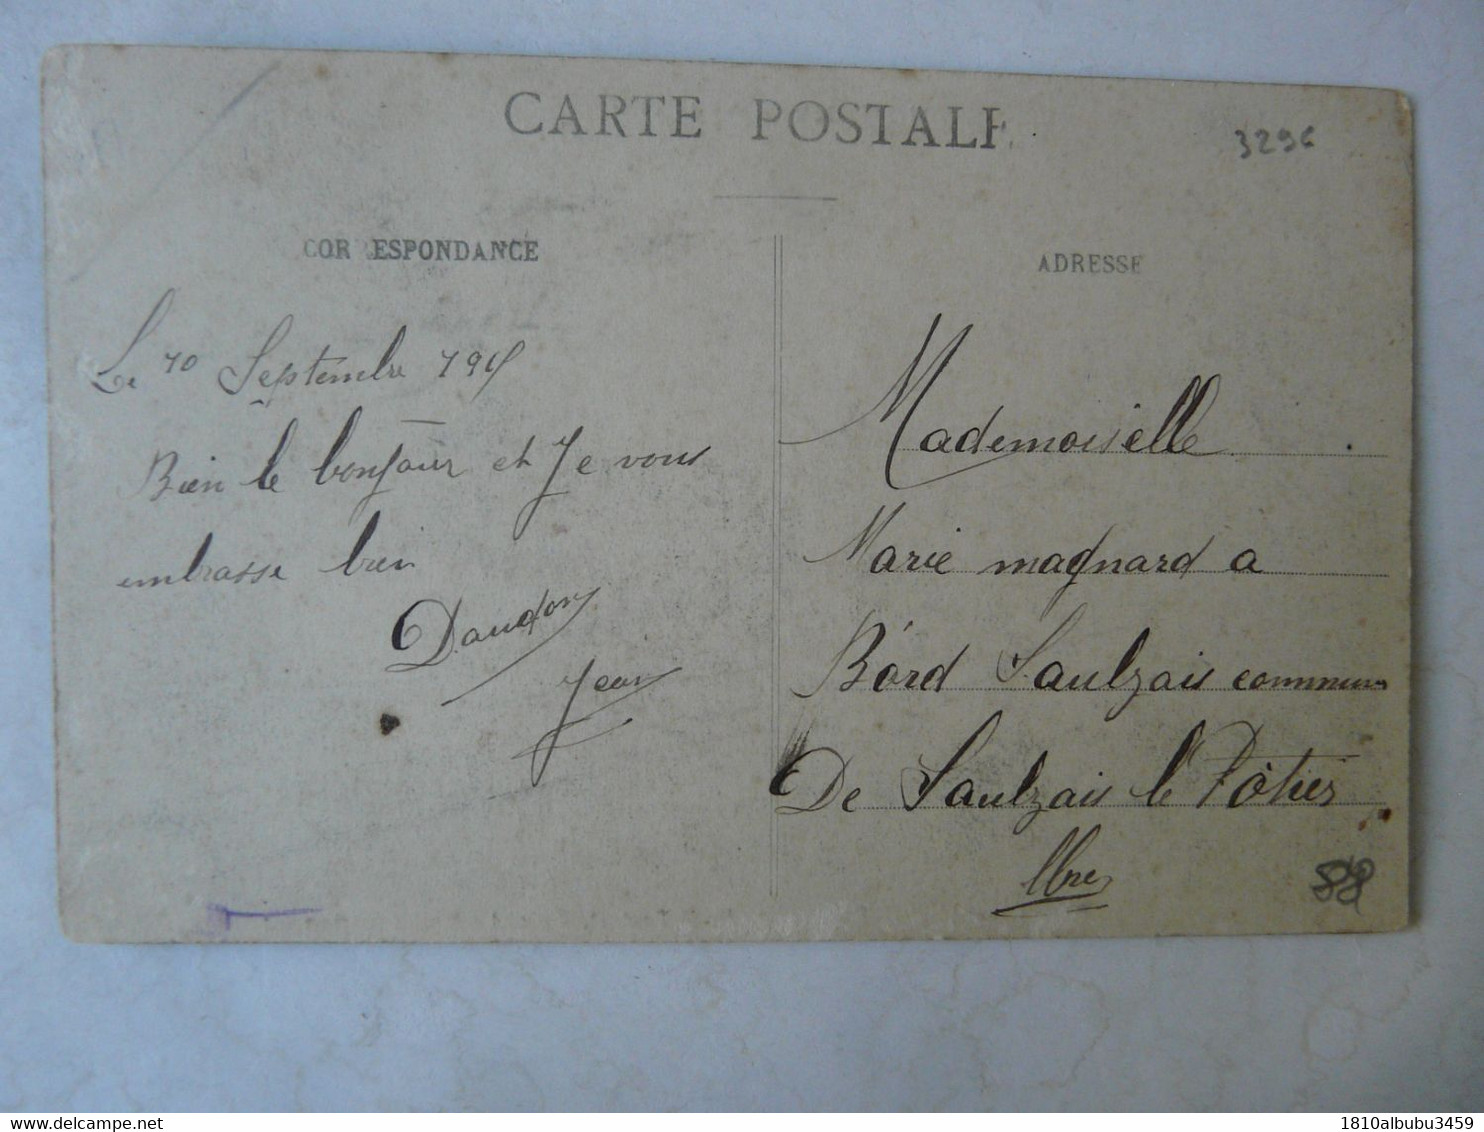 CARTE POSTALE
3296
CORRESPONDANCE
ADRESSE
Le 10 Septembre 1915
Bien le bonjour et Je vous
embrasse bien
Daudon
Jean
Mademoiselle
Marie magnard a
Bord Saulzais commune
De Saulzais le Pôtier
88
1810albubu3459